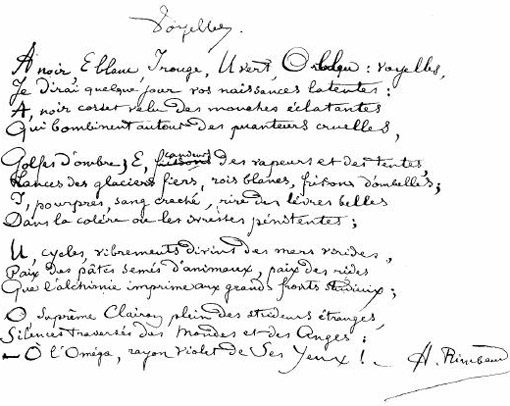 Voyelles
A noir, E blanc, I rouge, U vert, O bleu : voyelles,
Je dirai quelque jour vos naissances latentes :
A, noir corset velu des mouches éclatantes
Qui bombinent autour des puanteurs cruelles,
Golfes d'ombre ; E, frissons candeurs des vapeurs et des tentes,
Lances des glaciers fiers, rois blancs, frissons d'ombelles ;
I, pourpres, sang craché, rire des lèvres belles
Dans la colère ou les ivresses pénitentes ;
U, cycles, vibrements divins des mers virides,
Paix des pâtis semés d'animaux, paix des rides
Que l'alchimie imprime aux grands fronts studieux ;
O Suprême Clairon plein des strideurs étranges,
Silences traversés des Mondes et des Anges :
– Ô l'Oméga, rayon violet de Ses Yeux ! – A. Rimbaud